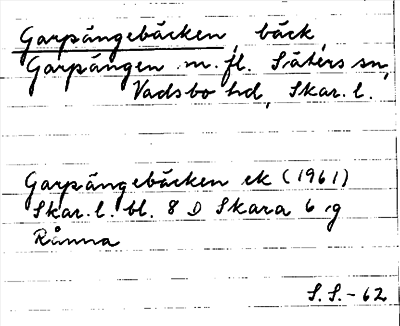 Garpängebäcken, bäck,
Garpängen m. fl. Säters sn,
Vadsbo hd, Skar. l.
Garpängebäcken ek (1961)
Skar. l. bl. 8 D Skara 6 g
Rånna
S.S.-62